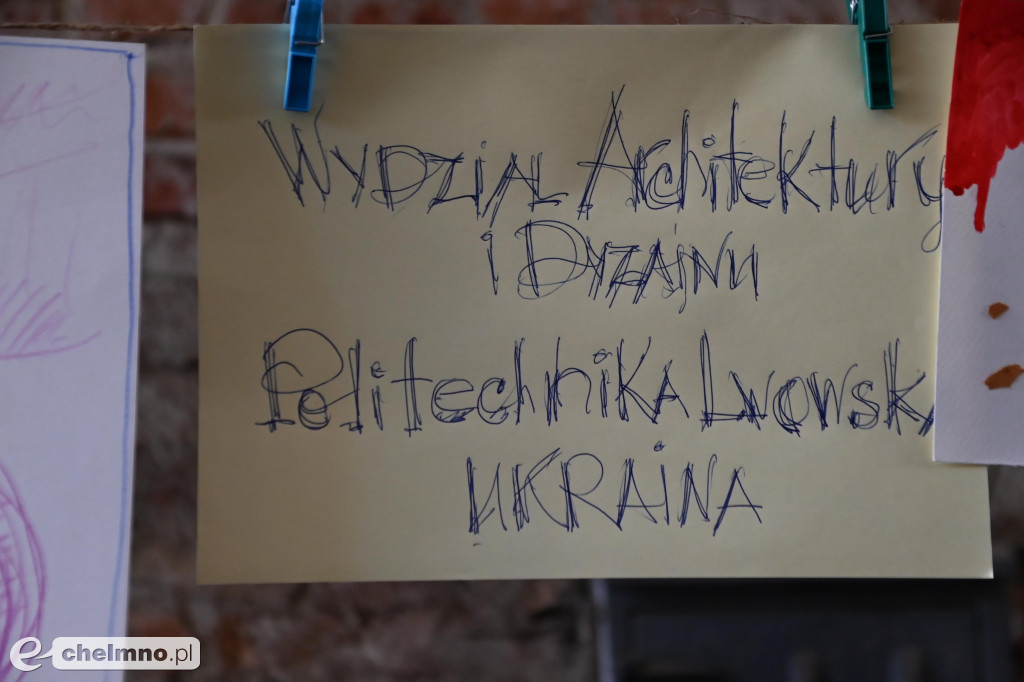 Wydział Architektury
i Dyzajnu
Politechnika Lwowsk
UKRAINA
chelmno.pl